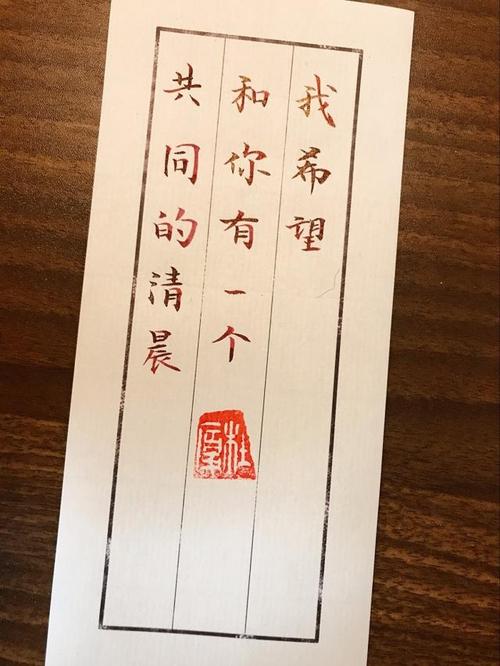 我希望
和你有一个
共同的清晨